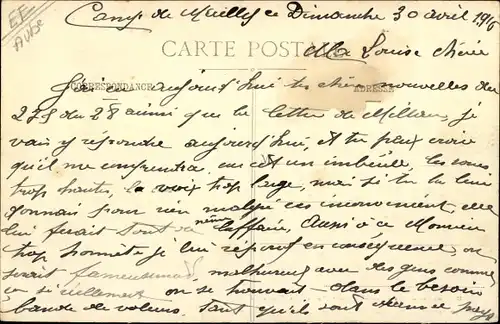 EE
AUBE
Camp de Mailly ce Dimanche 30 avril 1916
CARTE POSTALE
Ma Louise chérie
CORRESPONDANCE
ADRESSE
J'ai aujourd'hui tes chères nouvelles du
27 & du 28 ainsi que la lettre de Milhau, je
vais y répondre aujourd'hui, et tu peux croire
qu'il me comprendra, c'est un imbécile,
trop hautes, la voix trop large, mais si tu la lui
donnais pour rien malgré ces inconvenient, elle
lui ferait tout de même l'affaire, Aussi à ce Monsieur
trop honnête je lui répond en conséquence, on
serait fameusement malheureux avec des gens comme
ça si réellement on se trouvait dans le besoin
bande de voleurs, tant qu'ils sont